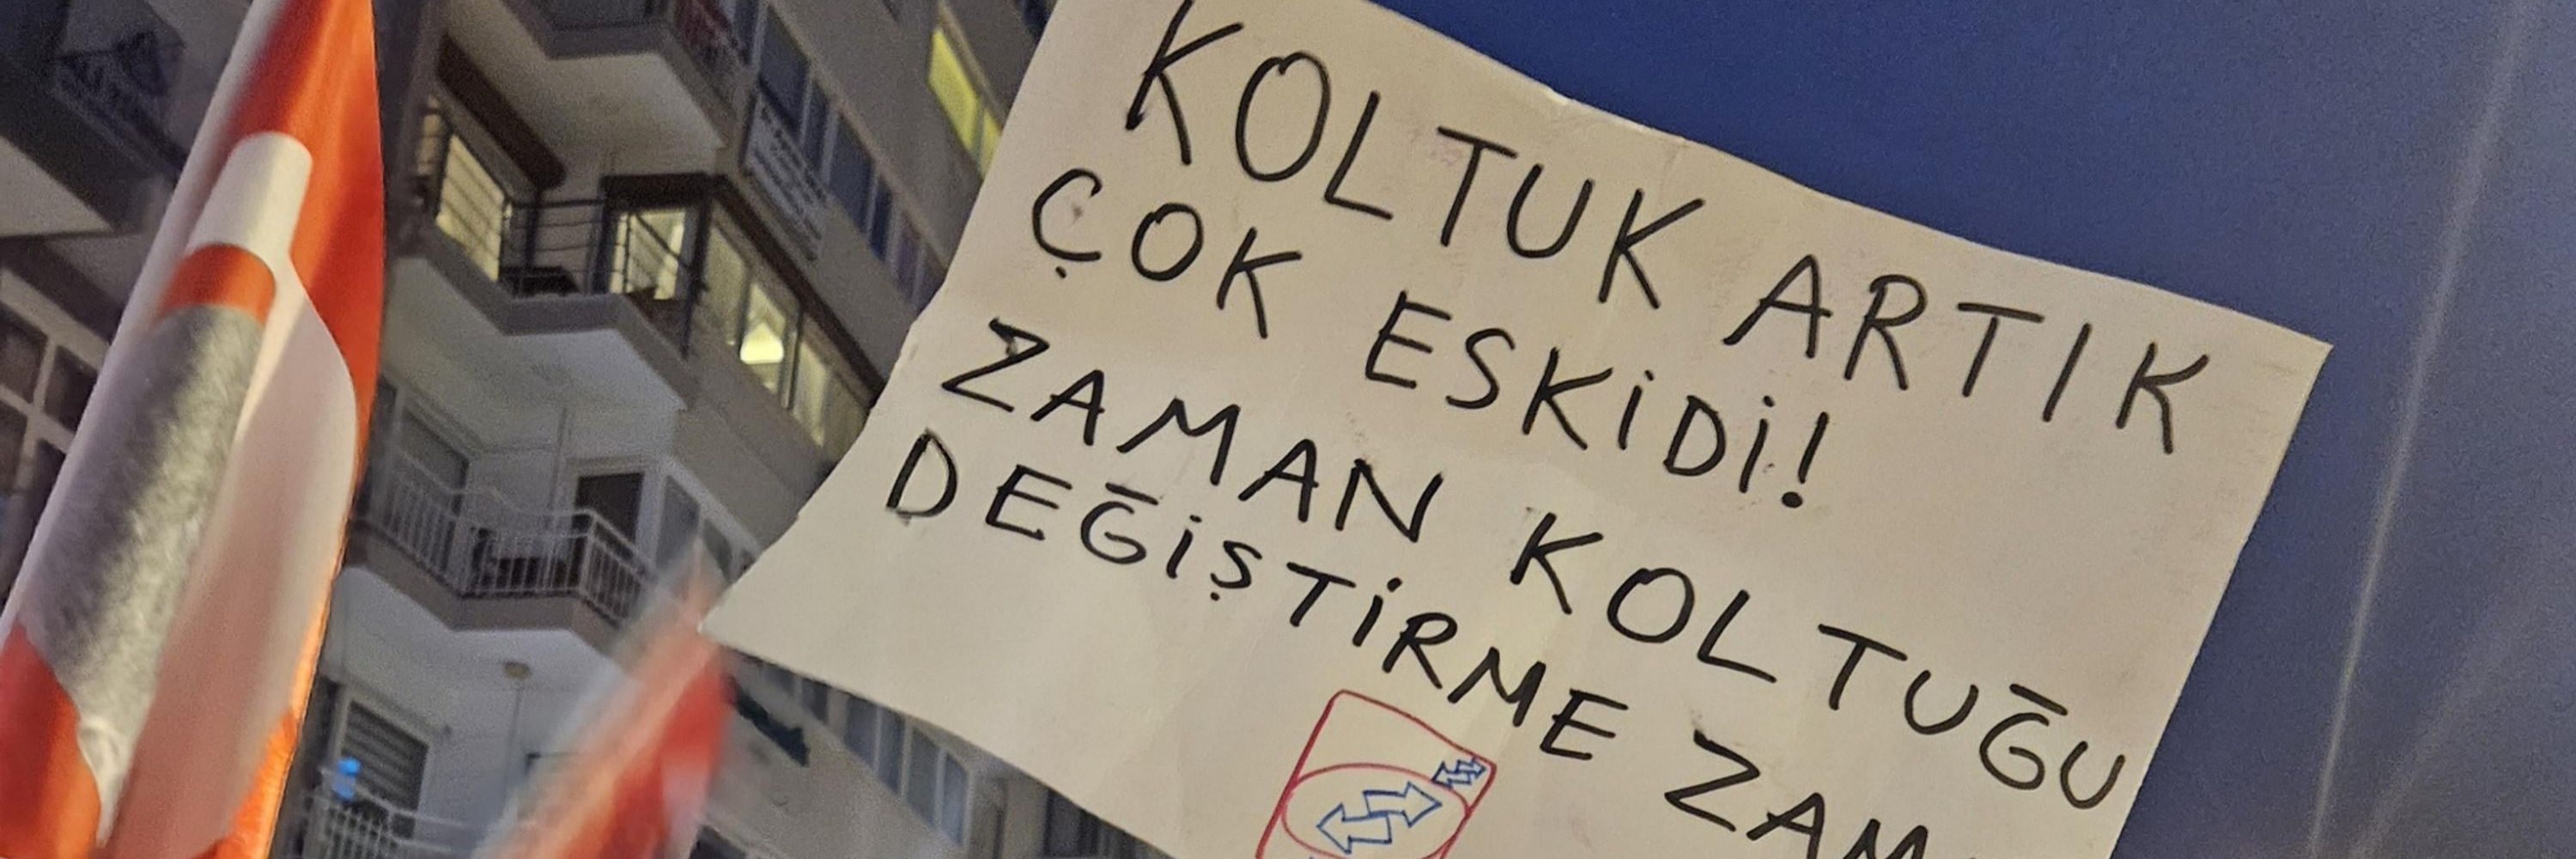 KOLTUK ARTIK
ÇOK ESKİDİ!
ZAMAN KOLTUĞU
DEĞİŞTİRME